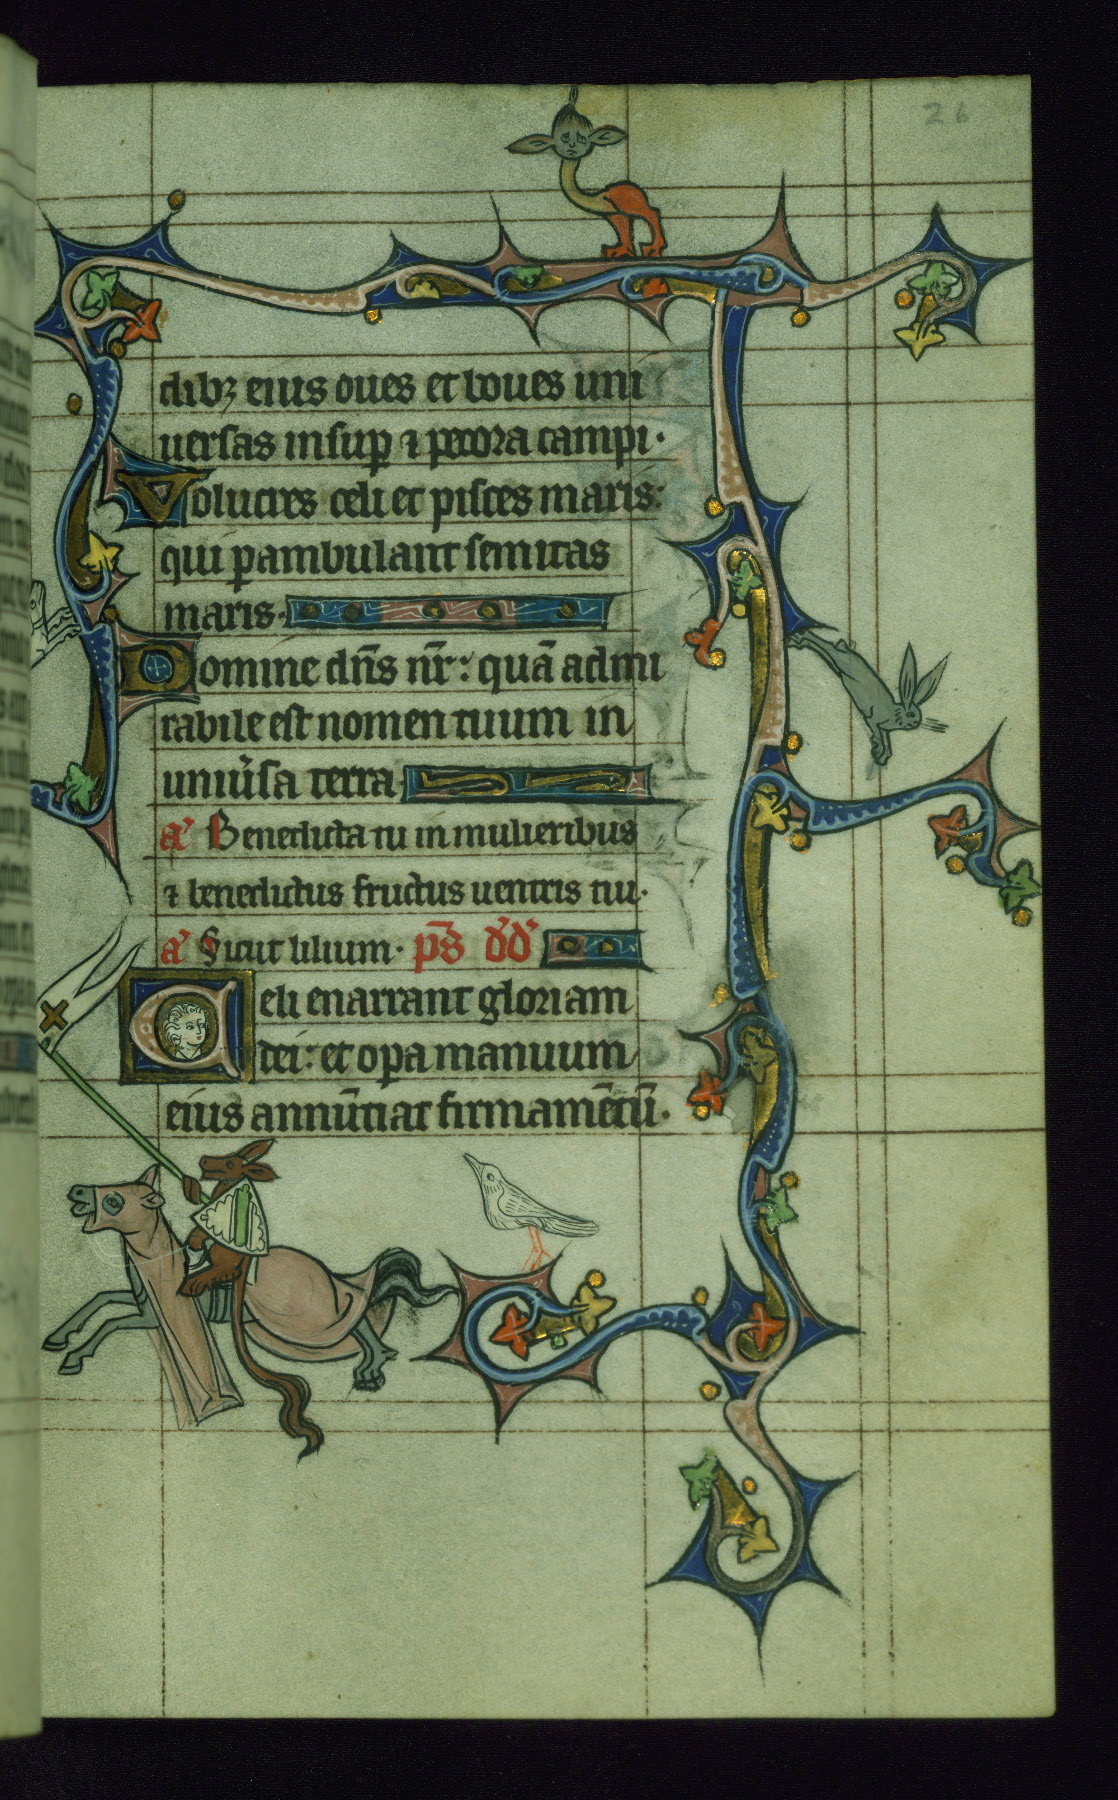 26
dibꝫ eius oues et boues uni
uersas insup ⁊ pecora campi·
Volucres celi et pisces maris:
qui pambulant semitas
maris·
Domine dn̄s nr̄: quā admi
rabile est nomen tuum in
uniu᷒sa terra
a᷒ Benedicta tu in mulieribus
⁊ benedictus fructus uentris tui·
a᷒ Sicut lilium· ps̄ dd᷒
Celi enarrant gloriam
dei: et opa manuum
eius annūtiat firmamētū·